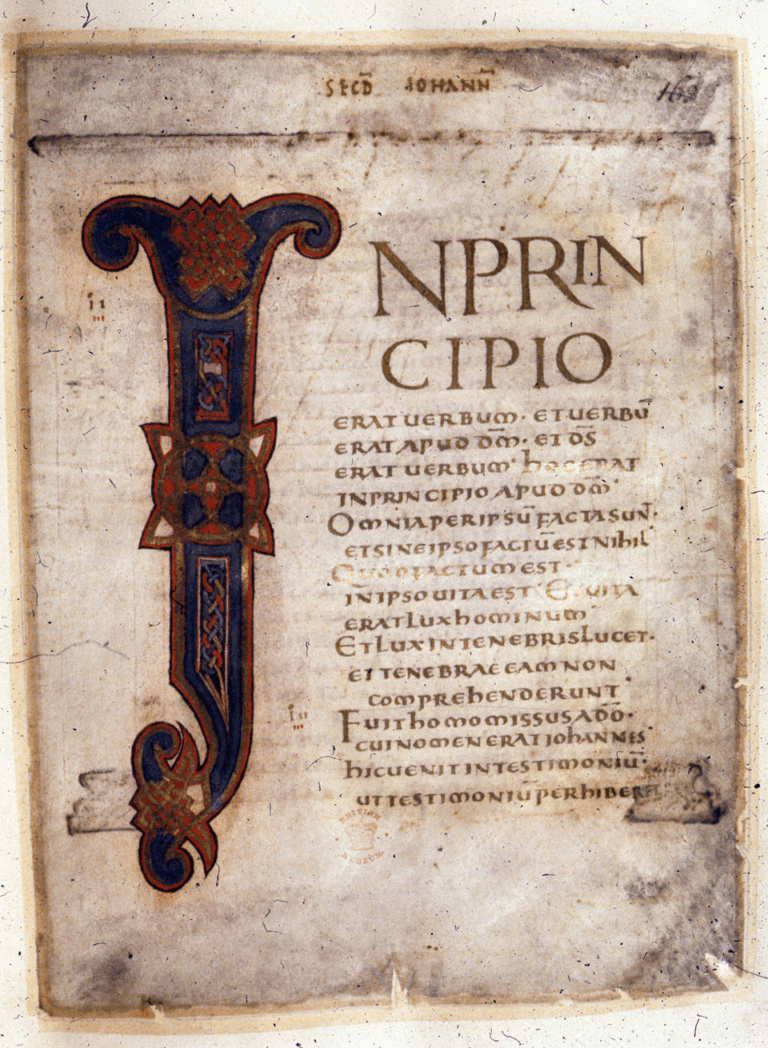 SECD̄ IOHANN̄
162
INPRIN
CIPIO
ERAT UERBUM · ET UERBŪ
ERAT APUD DM̄ · ET DS̄
ERAT UERBUM · HOC ERAT
IN PRINCIPIO APUD DM̄
OMNIA PER IPSŪ FACTA SUN̄ ·
ET SINE IPSO FACTŪ EST NIHIL
QUOD FACTUM EST ·
IN IPSO UITA EST ET UITA
ERAT LUX HOMINUM
ET LUX IN TENEBRIS LUCET ·
ET TENEBRAE EAM NON
COMPREHENDERUNT
FUIT HOMO MISSUS A DŌ ·
CUI NOMEN ERAT IOHANNES
HIC UENIT IN TESTIMONIŪ ·
UT TESTIMONIŪ PERHIBERET